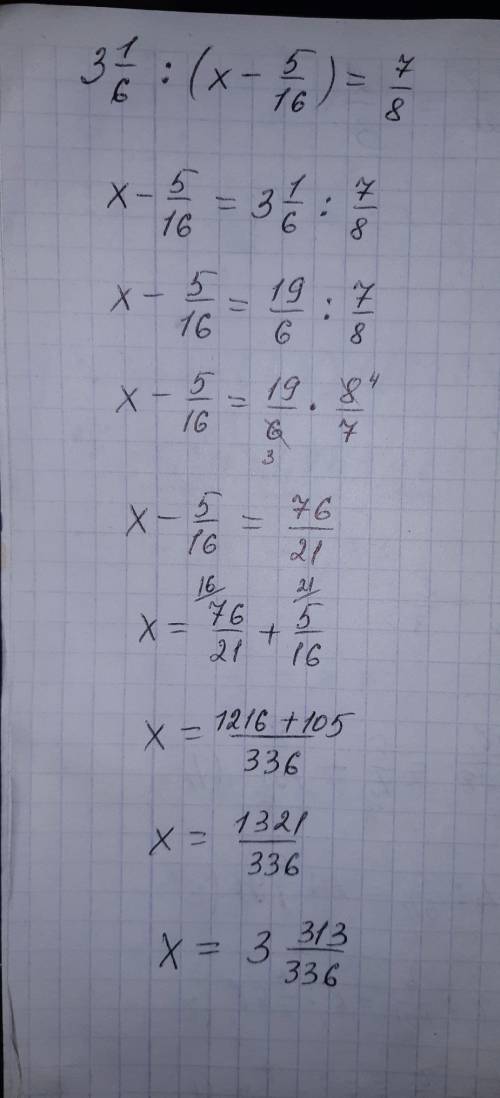 3 1/6 : (x - 5/16) = 7/8
x - 5/16 = 3 1/6 : 7/8
x - 5/16 = 19/6 : 7/8
x - 5/16 = 19/6 3 · 8/7 4
x - 5/16 = 76/21
x = 16/ 76/21 + 21/ 5/16
x = 1216 + 105/336
x = 1321/336
x = 3 313/336